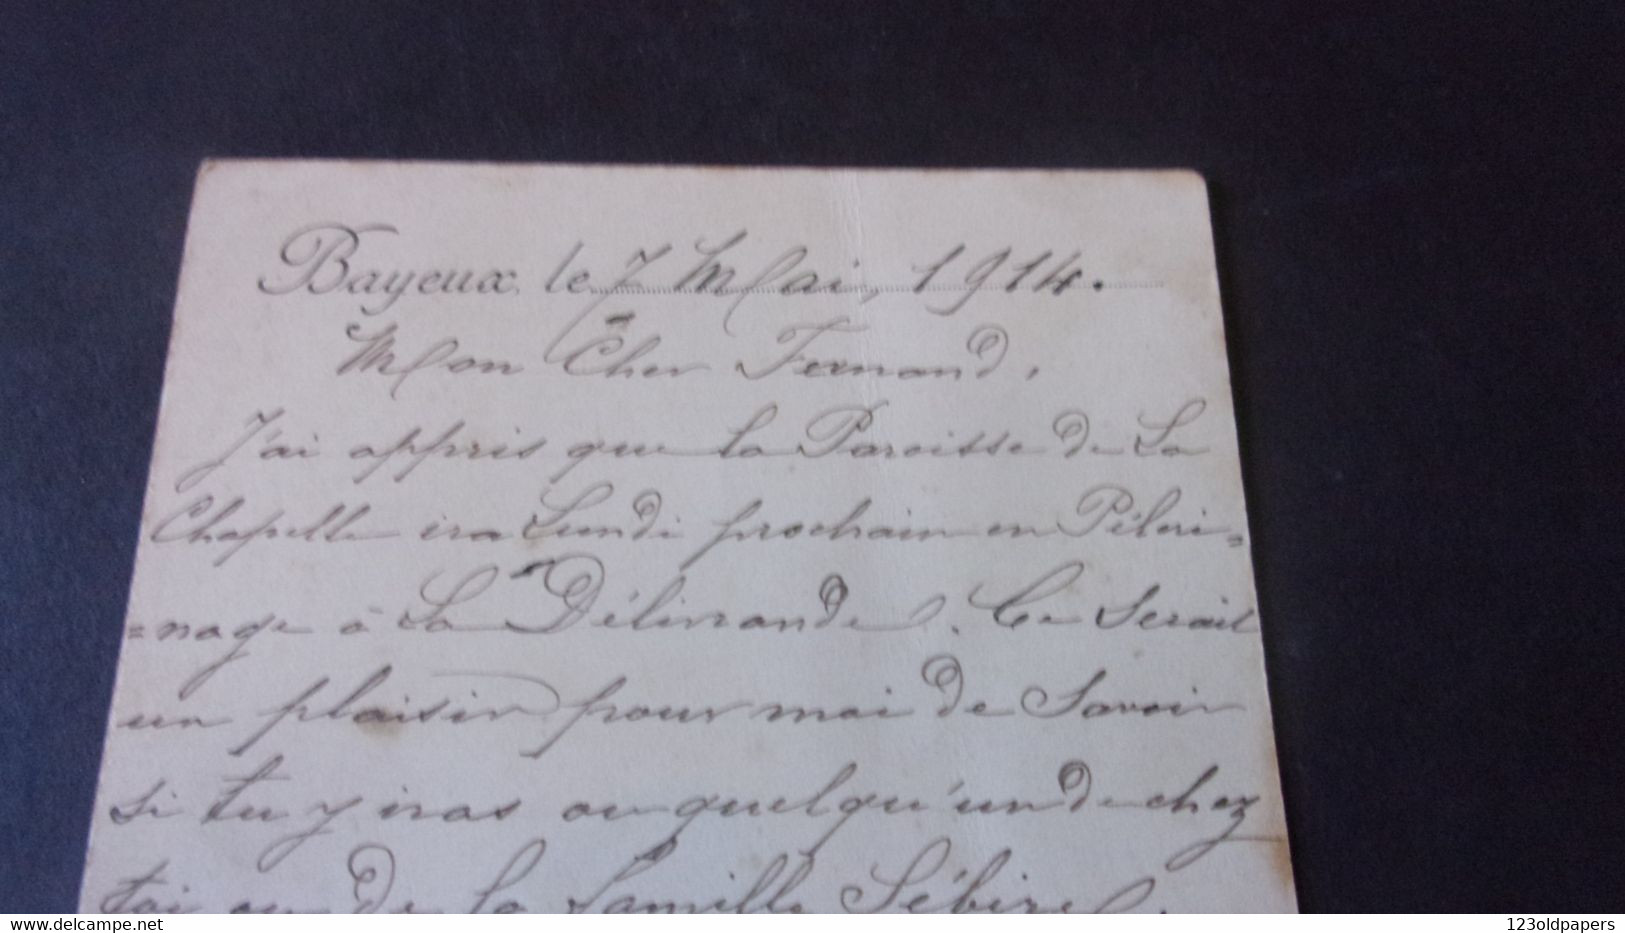 Bayeux, le 7 Mai, 1914.
Mon Cher Fernand,
J'ai appris que la Paroisse de La
Chapelle ira Lundi prochain en Péleri=
=nage à La Délivrande. Ce serait
un plaisir pour moi de savoir
si tu y iras ou quelqu'un de chez
toi ou de la famille Sébire.
delcampe.net
123oldpapers